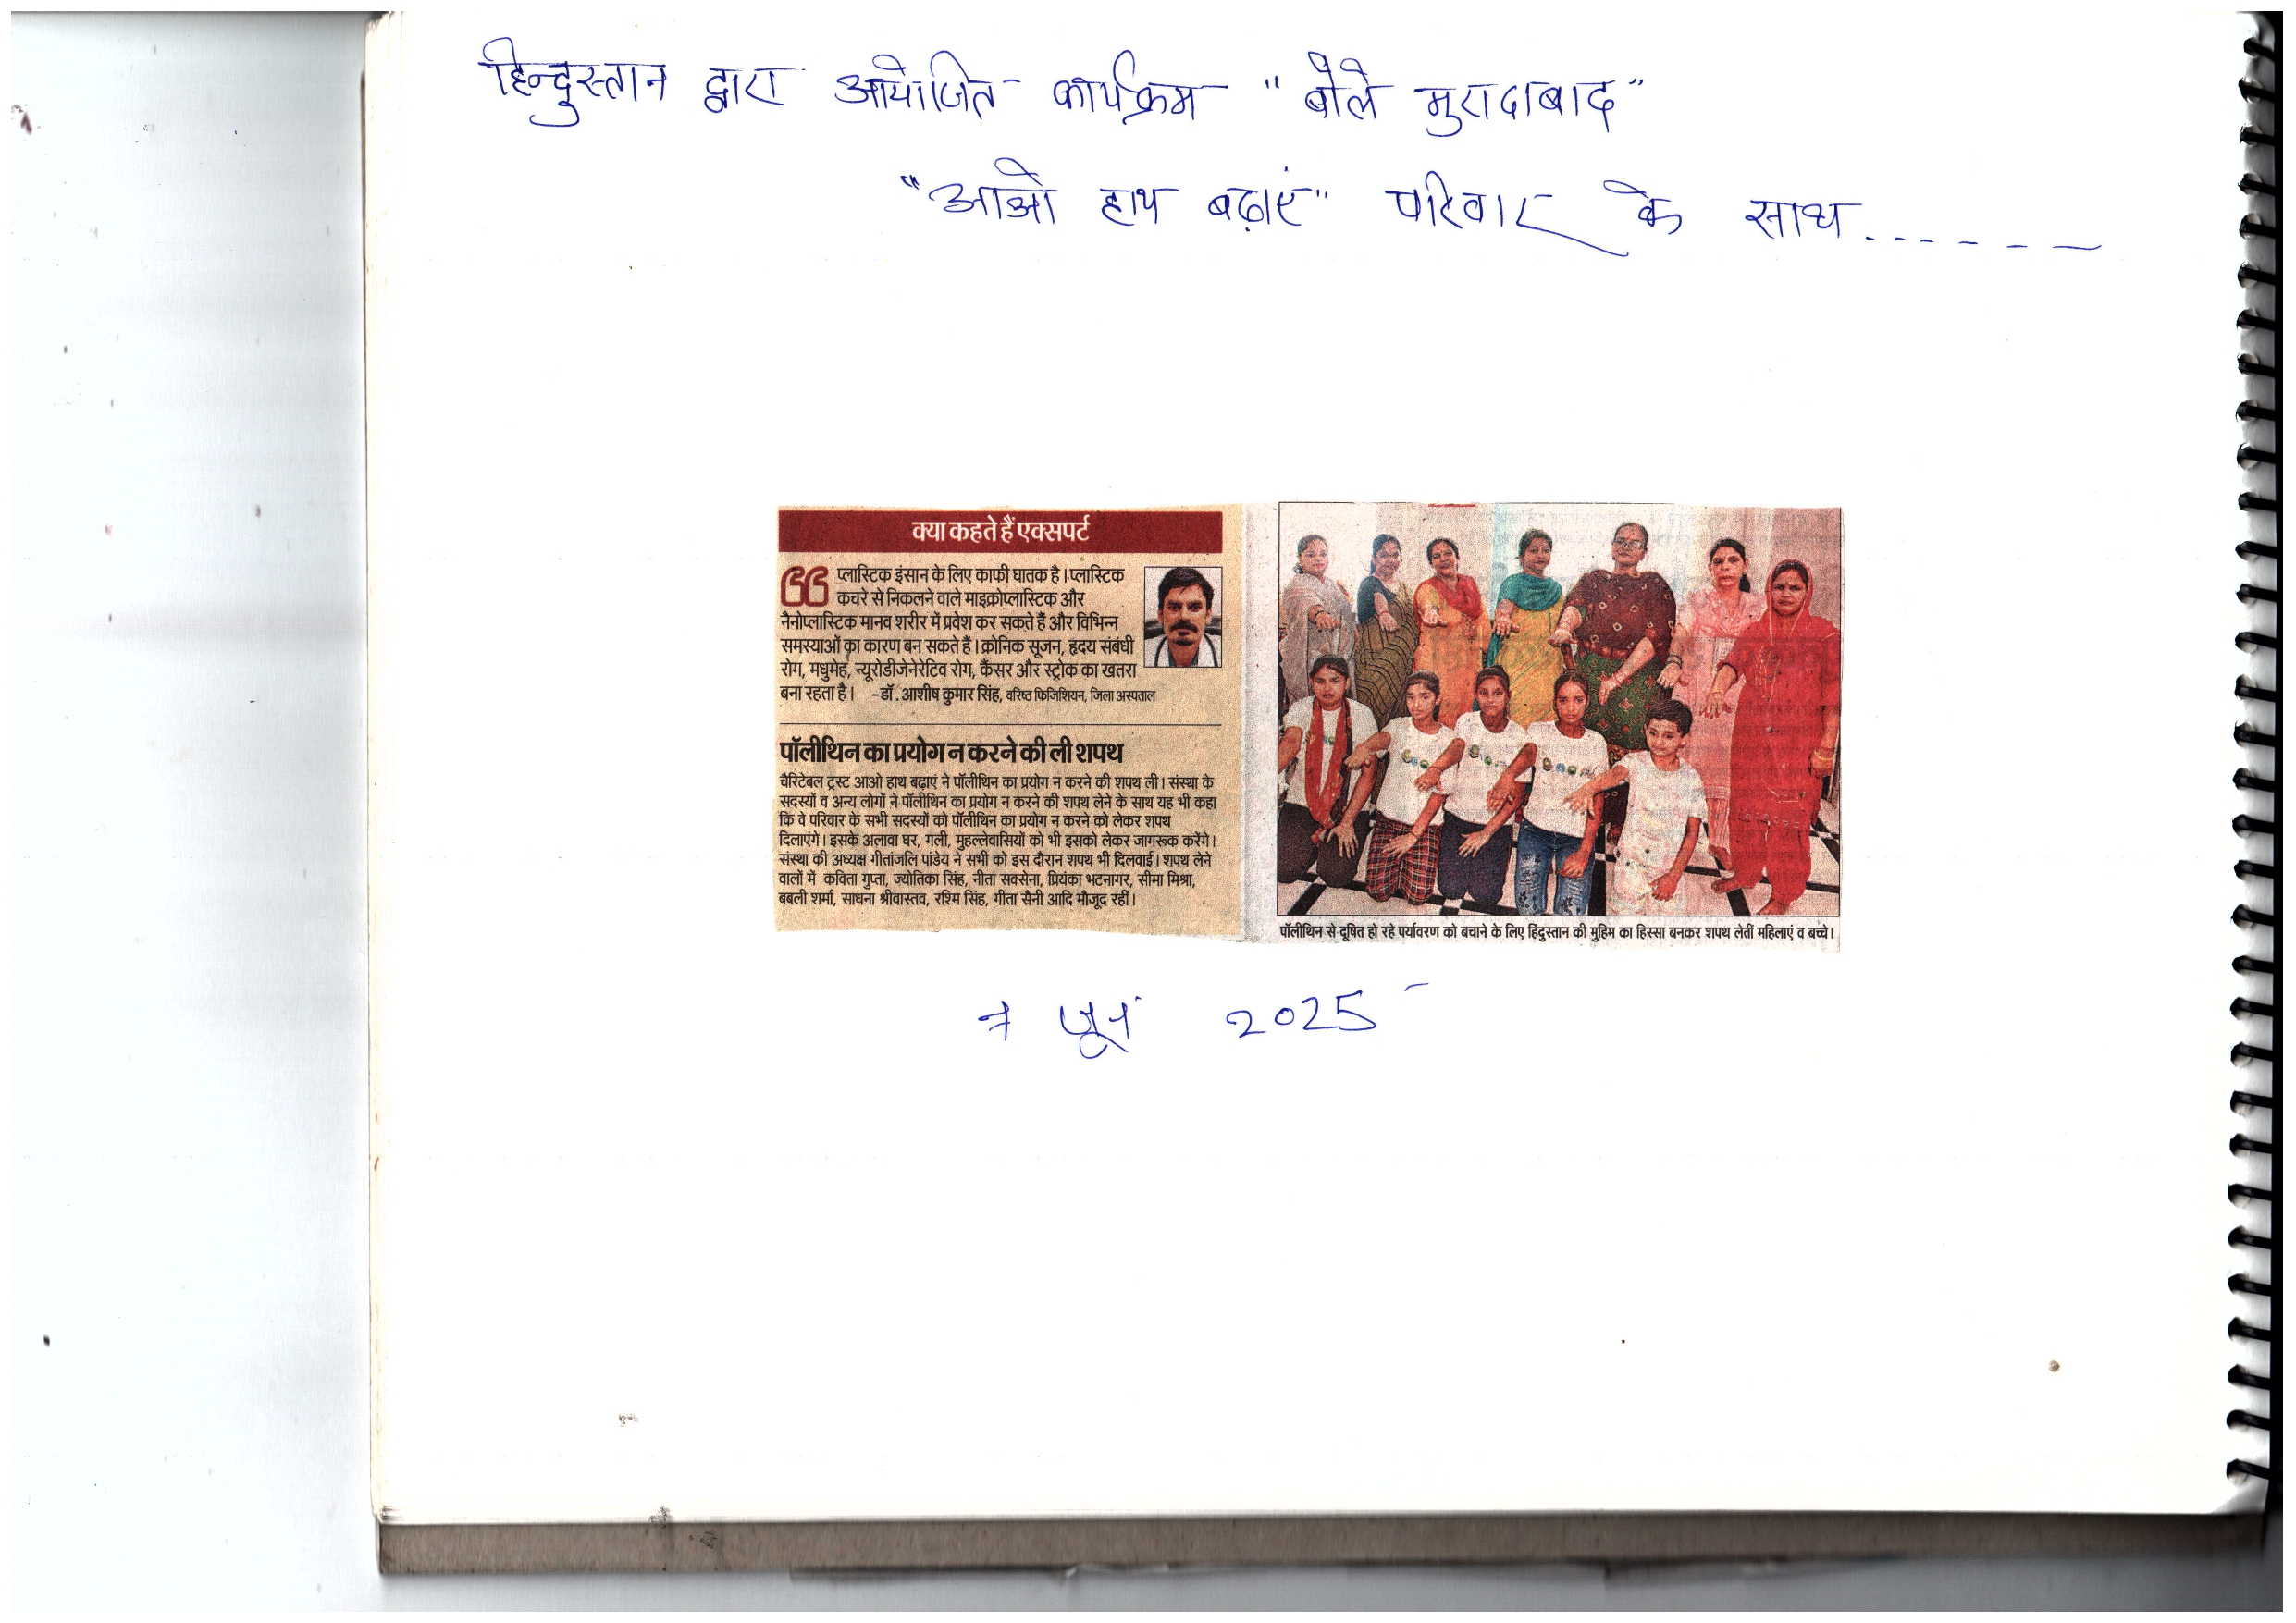 हिन्दुस्तान द्वारा आयोजित कार्यक्रम "बोले मुरादाबाद"
"आओ हाथ बढ़ाएं" परिवार के साथ......
क्या कहते हैं एक्सपर्ट
प्लास्टिक इंसान के लिए काफी घातक है। प्लास्टिक
कचरे से निकलने वाले माइक्रोप्लास्टिक और
नैनोप्लास्टिक मानव शरीर में प्रवेश कर सकते हैं और विभिन्न
समस्याओं का कारण बन सकते हैं। क्रोनिक सूजन, हृदय संबंधी
रोग, मधुमेह, न्यूरोडीजेनेरेटिव रोग, कैंसर और स्ट्रोक का खतरा
बना रहता है। -डॉ. आशीष कुमार सिंह, वरिष्ठ फिजिशियन, जिला अस्पताल
पॉलीथिन का प्रयोग न करने की ली शपथ
चैरिटेबल ट्रस्ट आओ हाथ बढ़ाएं ने पॉलीथिन का प्रयोग न करने की शपथ ली। संस्था के
सदस्यों व अन्य लोगों ने पॉलीथिन का प्रयोग न करने की शपथ लेने के साथ यह भी कहा
कि वे परिवार के सभी सदस्यों को पॉलीथिन का प्रयोग न करने को लेकर शपथ
दिलाएंगे। इसके अलावा घर, गली, मुहल्लेवासियों को भी इसको लेकर जागरूक करेंगे।
संस्था की अध्यक्ष गीतांजलि पांडेय ने सभी को इस दौरान शपथ भी दिलवाई। शपथ लेने
वालों में कविता गुप्ता, ज्योतिका सिंह, नीता सक्सेना, प्रियंका भटनागर, सीमा मिश्रा,
बबली शर्मा, साधना श्रीवास्तव, रश्मि सिंह, गीता सैनी आदि मौजूद रहीं।
पॉलीथिन से दूषित हो रहे पर्यावरण को बचाने के लिए हिंदुस्तान की मुहिम का हिस्सा बनकर शपथ लेतीं महिलाएं व बच्चे।
जून 2025